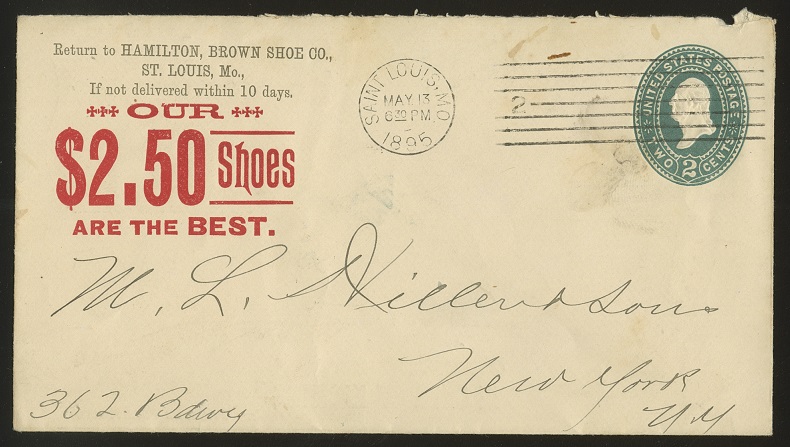 Return to HAMILTON, BROWN SHOE CO.,
ST. LOUIS, Mo.,
If not delivered within 10 days.
OUR
$2.50 Shoes
ARE THE BEST.
SAINT LOUIS, MO.
MAY 13
6 30 PM
1895
2
UNITED STATES POSTAGE
TWO 2 CENTS
M. L. & Sons
New York
N.Y.
362 Bdwy